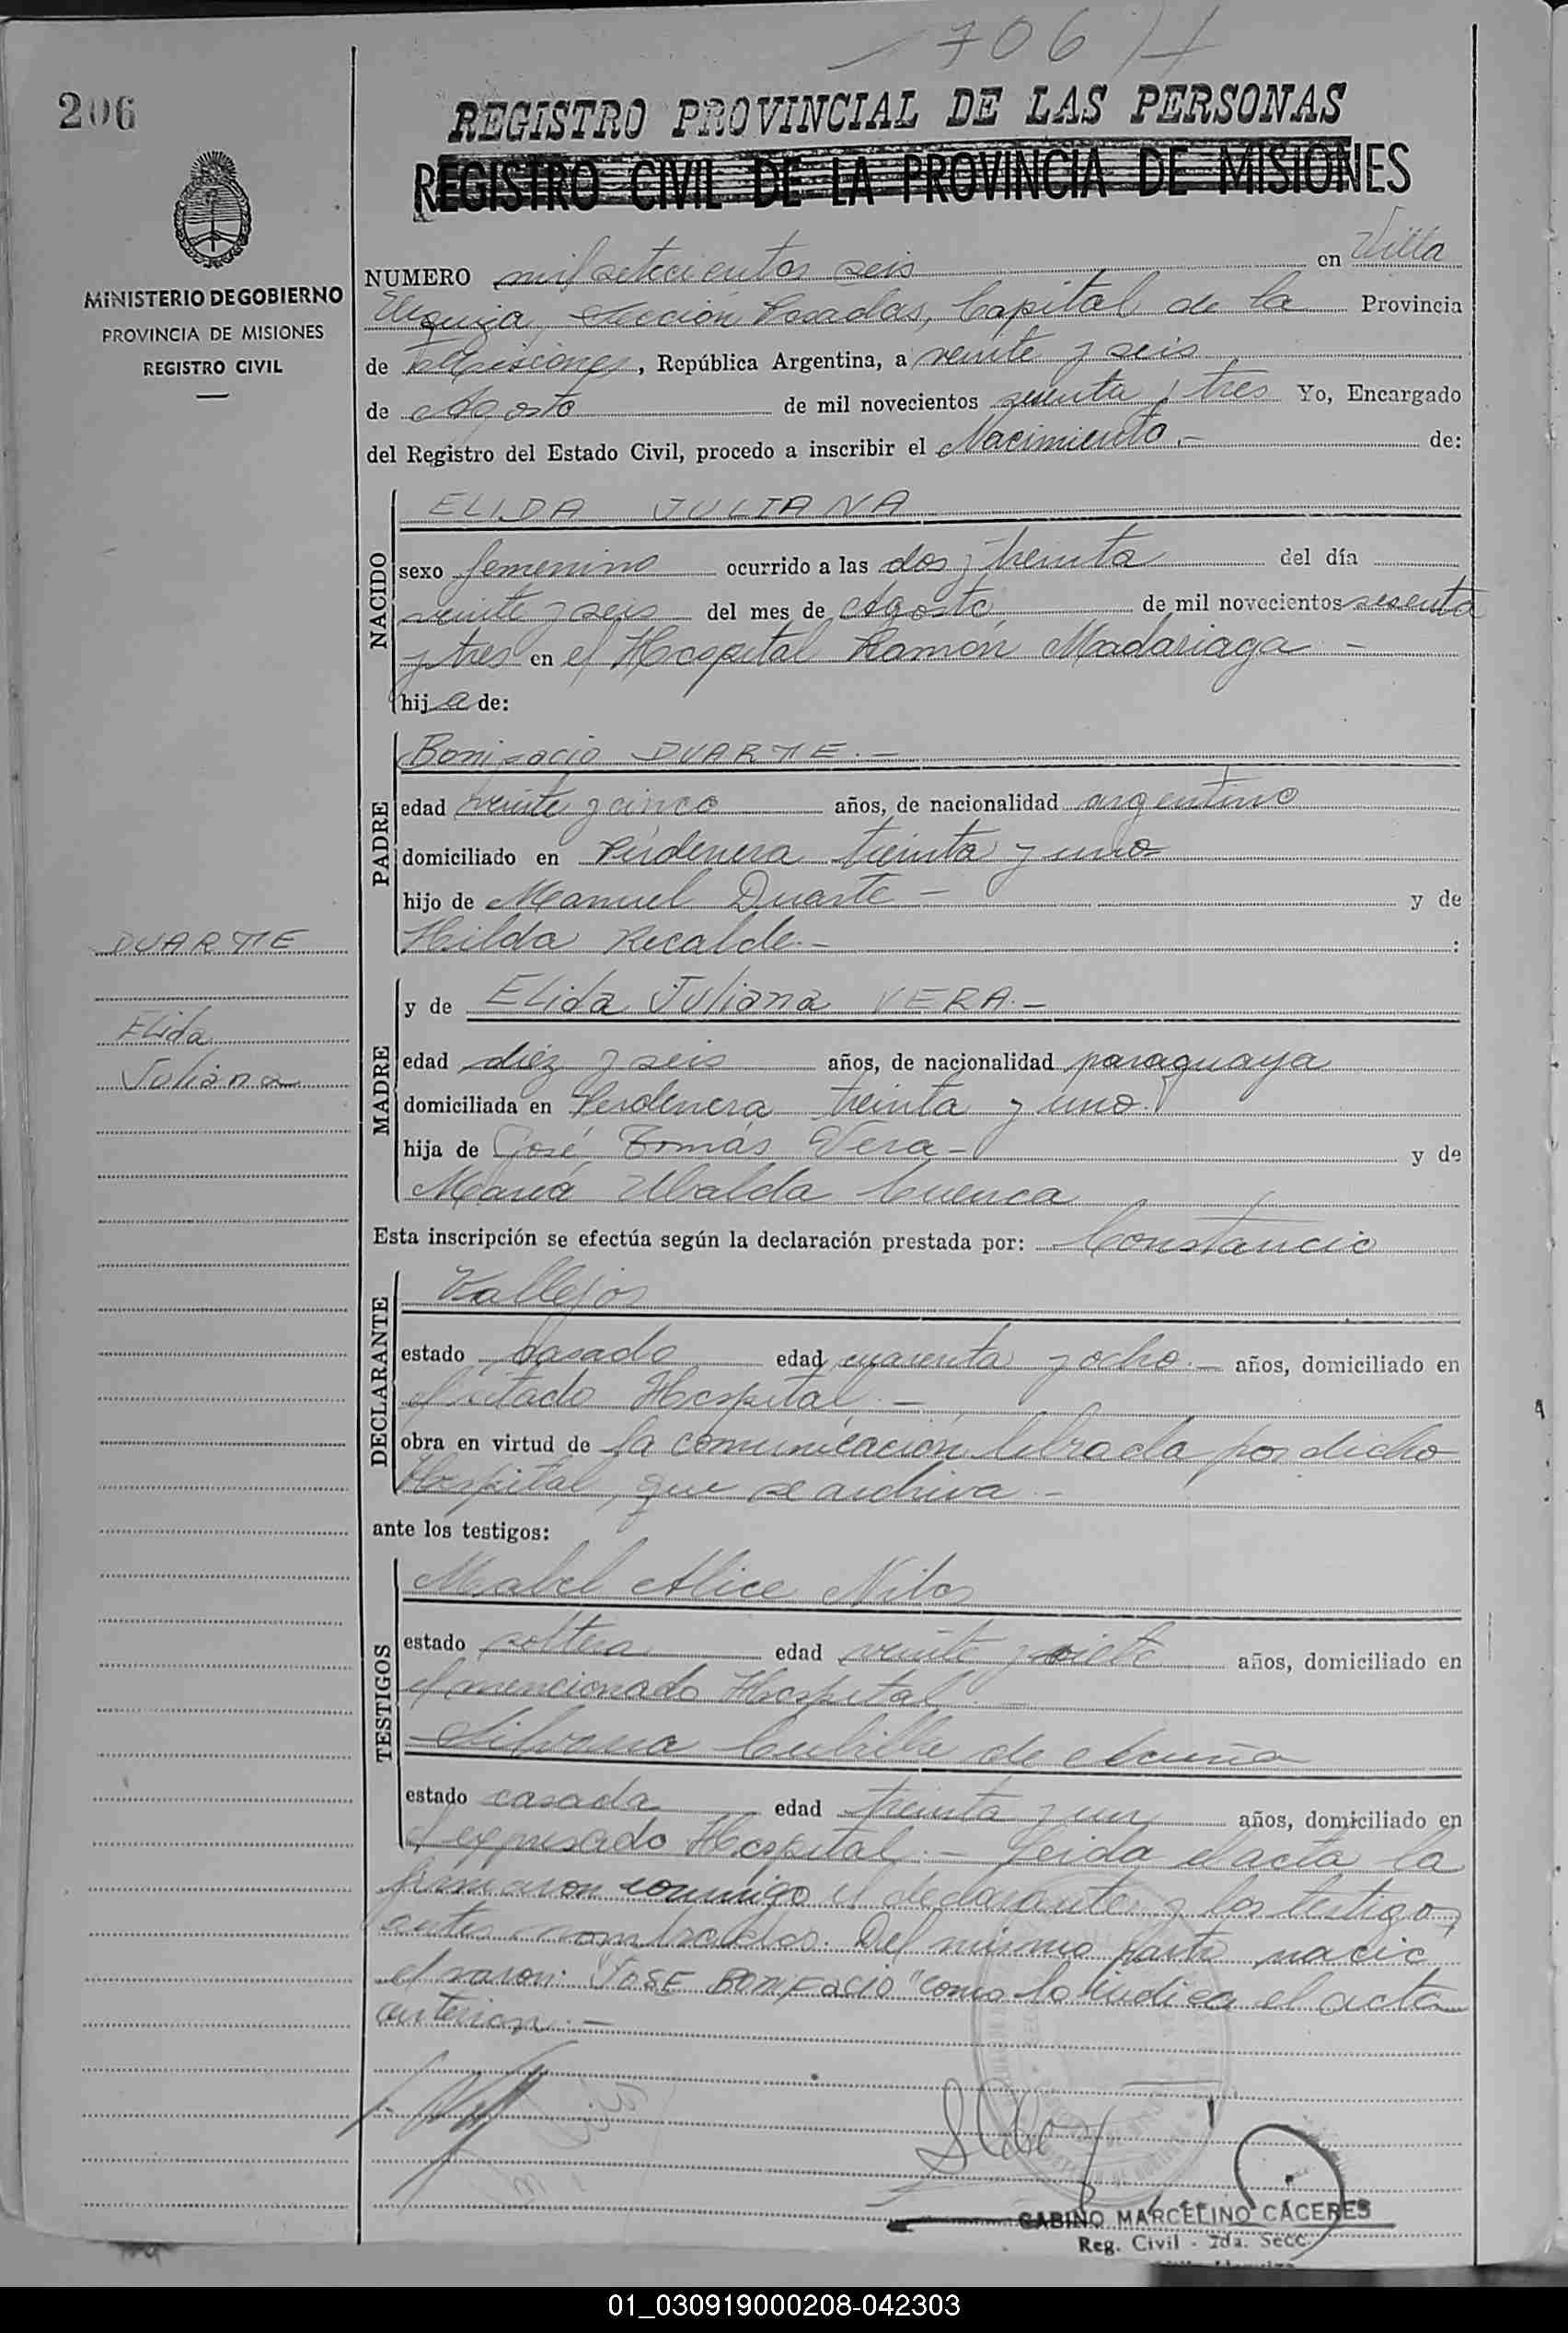 1706
206
REGISTRO PROVINCIAL DE LAS PERSONAS
REGISTRO CIVIL DE LA PROVINCIA DE MISIONES
MINISTERIO DE GOBIERNO
PROVINCIA DE MISIONES
REGISTRO CIVIL
NUMERO mil setecientos seis en Villa
Urquiza, Sección Posadas, Capital de la Provincia
de Misiones, República Argentina, a veinte y seis
de Agosto de mil novecientos sesenta y tres Yo, Encargado
del Registro del Estado Civil, procedo a inscribir el Nacimiento.- de:
NACIDO
ELIDA JULIANA
sexo femenino ocurrido a las dos y treinta del día
veinte y seis del mes de Agosto de mil novecientos sesenta
y tres en el Hospital Ramón Madariaga -
hija de:
PADRE
Bonifacio DUARTE.-
edad veinte y cinco años, de nacionalidad argentino
domiciliado en Perdenera treinta y uno
hijo de Manuel Duarte - y de
Hilda Recalde.- :
DUARTE
Elida
Juliana
MADRE
y de Elida Juliana VERA.-
edad diéz y seis años, de nacionalidad paraguaya
domiciliada en Perdenera treinta y uno.
hija de José Tomás Vera - y de
María Ubalda Cuenca
Esta inscripción se efectúa según la declaración prestada por: Constancio
DECLARANTE
Vallejos
estado casado edad cuarenta y ocho.- años, domiciliado en
el citado Hospital.-
obra en virtud de la comunicación librada por dicho
Hospital, que se archiva.-
ante los testigos:
TESTIGOS
Mabel Alice
estado soltera edad veinte y siete años, domiciliado en
el mencionado Hospital.-
Silvana Cubilla de Acuña
estado casada edad treinta y un años, domiciliado en
el expresado Hospital.- Leida el acta la
firmaron conmigo el declarante y los testigos
antes nombrados. Del mismo parto nació
el varon: "JOSE BONIFACIO" como lo indica el acta
anterior.-
GABINO MARCELINO CACERES
Reg. Civil - 2da. Secc.
01_030919000208-042303